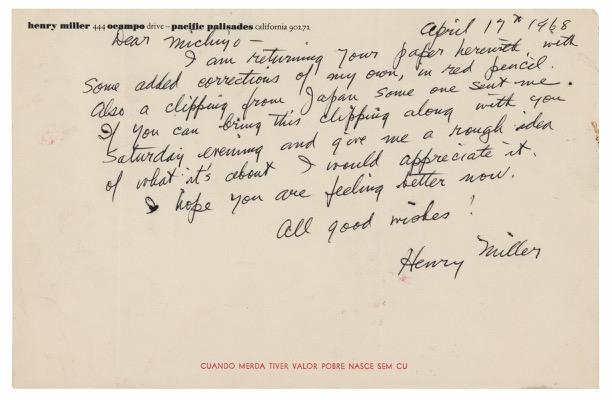 henry miller 444 ocampo drive – pacific palisades california 90272
April 17th 1968
Dear Michiyo –
I am returning your paper herewith, with
some added corrections of my own, in red pencil.
Also a clipping from Japan some one sent me.
If you can bring this clipping along with you
Saturday evening and give me a rough idea
of what it's about I would appreciate it.
I hope you are feeling better now.
All good wishes!
Henry Miller
CUANDO MERDA TIVER VALOR POBRE NASCE SEM CU